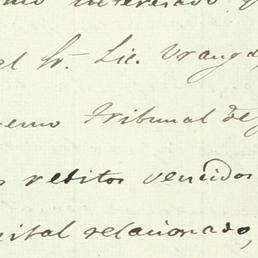 interesado
el Sr. Lic. Uranga,
remo Tribunal de J
s reditos vencidos
pital relacionado,